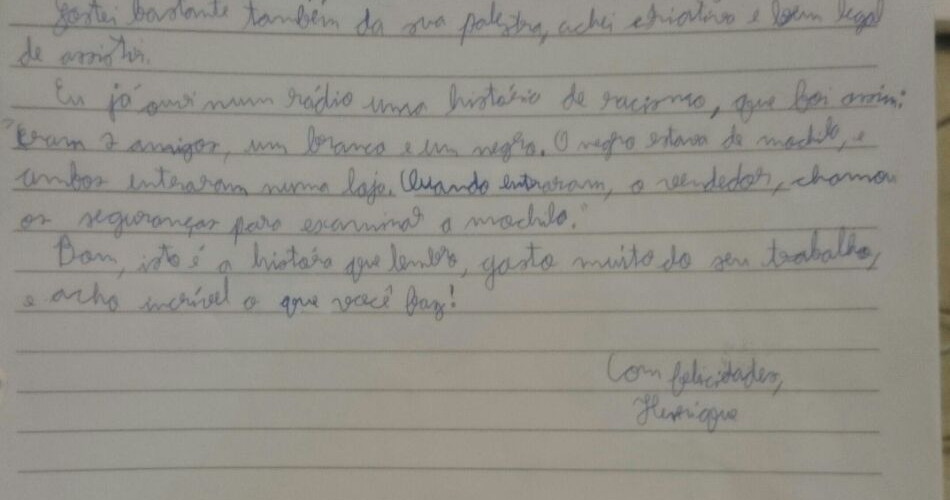 Gostei bastante também da sua palestra, achei criativo e bem legal
de assistir.
Eu já ouvi num rádio uma história de racismo, que foi assim:
"Eram 2 amigos, um branco e um negro. O negro estava de mochila, e
ambos entraram numa loja. Quando entraram, o vendedor, chamou
os seguranças para examinar a mochila."
Bom, isto é a história que lembro, gosto muito do seu trabalho,
e acho incrível o que você faz!
Com felicidades,
Henrique